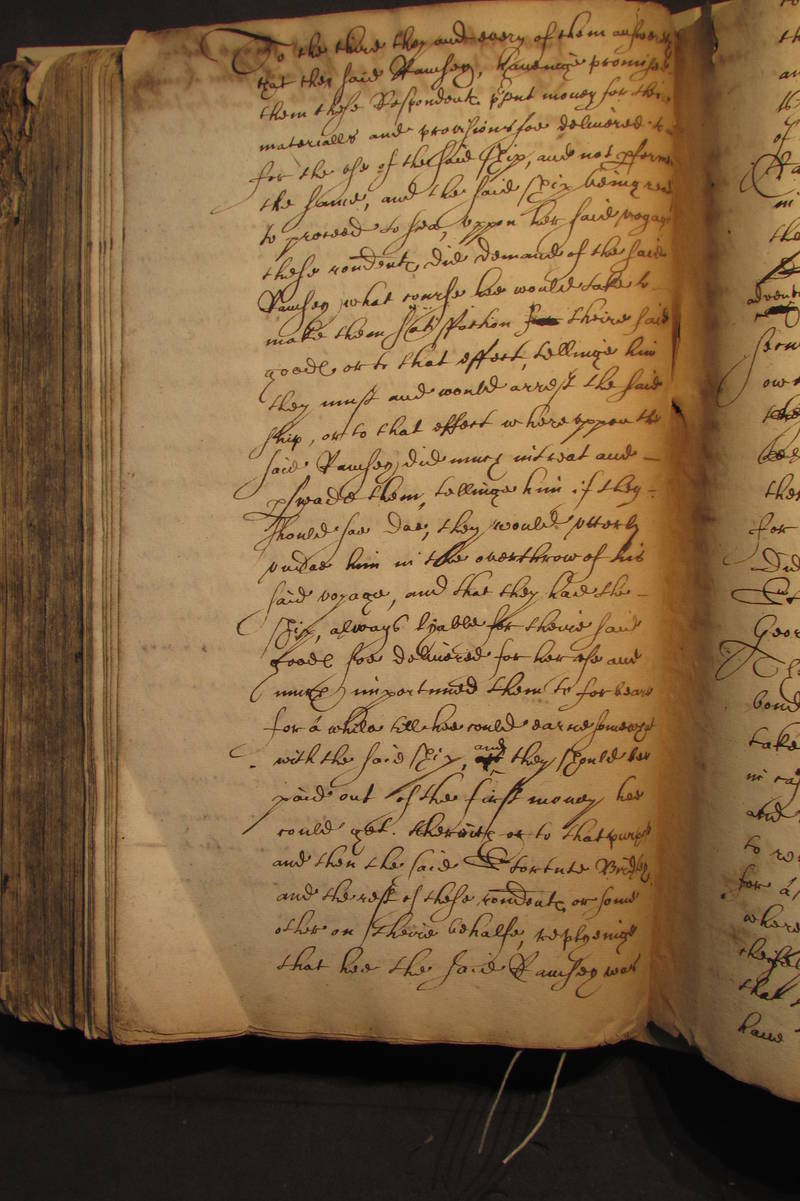 To the third they and every of them answer
that the said Ramsey, haveinge promised
them these Respondents p'sent money for their
materialls and provisions soe delivered
for the use of the said ship, and not p'formed
the same, and the said ship being readie
to proceed to sea, uppon her said voyage
these rondents did demand of the said
Ramsey what course hee would take to
make them satisfaction theire said
goods or to that effect, tellinge him
they must and would arrest the said
ship, or to that effect whereuppon the
said Ramsey did much intreat and
p'swade them, tellinge him if they
should soe doe, they would utterly
undoe him in the overthrow of his
said voyage, and that they had the
ship, always lyable for theire said
goods soe delivered for her use and
much importuned them to forbeare
for a while till hee could earne somewt
with the said ship, and they should bee
paid out of the first money hee
could get. therwith or to that purpose
and then the said Fortune Bridges
and the rest of these rondents or some
other on theire behalfe, replyeinge
that hee the said Ramsey was
adventu
secu
own
ther
for
Did
Geor
bond
take
in ca
and
to re
for a
where
that
have